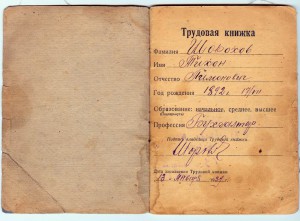 Трудовая книжка
Фамилия Шорохов
Имя Тихон
Отчество
Год рождения 1892
Образование: начальное, среднее, высшее
Профессия Бухгалтер
Подпись владельца Трудовой книжки
Дата заполнения Трудовой книжки
13 39